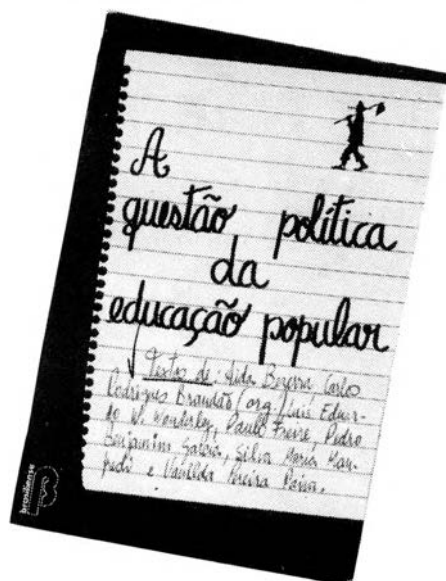 A
questão política
da
educação popular
Textos de: Aida Bezerra, Carlos
Rodrigues Brandão (org.), Luiz Eduar-
do W. Wanderley, Paulo Freire, Pedro
Benjamim Garcia, Silvia Maria Man-
fredi e Vanilda Pereira Paiva.
brasiliense